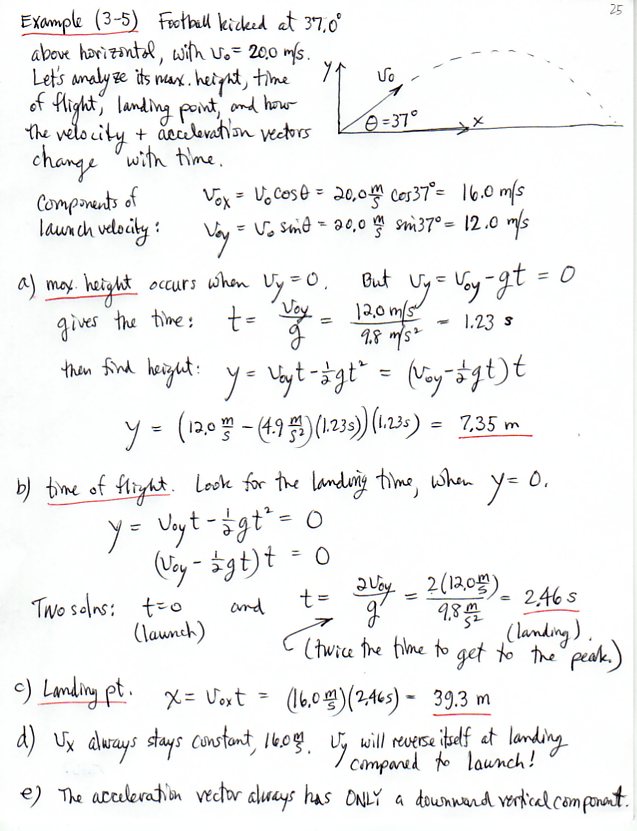 25
Example (3-5) Football kicked at 37.0°
above horizontal, with v₀ = 20.0 m/s.
Let's analyze its max. height, time
of flight, landing point, and how
the velocity + acceleration vectors
change with time.
y
v₀
θ = 37°
x
Components of
launch velocity:
v₀ₓ = v₀ cosθ = 20.0 m/s cos 37° = 16.0 m/s
v₀y = v₀ sinθ = 20.0 m/s sin 37° = 12.0 m/s
a) max. height occurs when vy = 0. But vy = v₀y - gt = 0
gives the time: t = v₀y/g = 12.0 m/s / 9.8 m/s² = 1.23 s
then find height: y = v₀yt - ½gt² = (v₀y - ½gt)t
y = (12.0 m/s - (4.9 m/s²)(1.23s))(1.23s) = 7.35 m
b) time of flight. Look for the landing time, when y = 0.
y = v₀yt - ½gt² = 0
(v₀y - ½gt)t = 0
Two solns: t=0 and t = 2v₀y/g = 2(12.0 m/s)/9.8 m/s² = 2.46 s
(launch) (landing).
(twice the time to get to the peak.)
c) Landing pt. x = v₀ₓt = (16.0 m/s)(2.46s) = 39.3 m
d) vₓ always stays constant, 16.0 m/s. vy will reverse itself at landing
compared to launch!
e) The acceleration vector always has ONLY a downward vertical component.